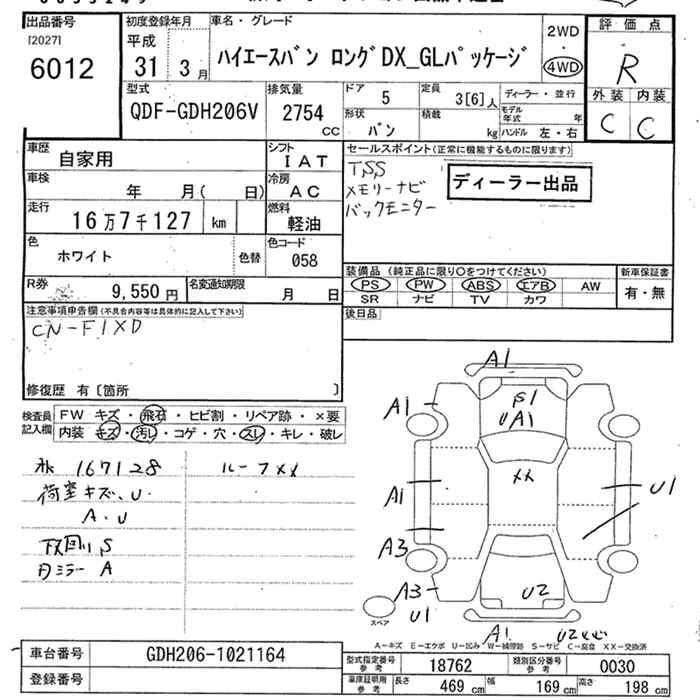 出品番号
[2027]
6012
初度登録年月
平成
31 3月
車名・グレード
ハイエースバン ロングDX_GLパッケージ
2WD
・
4WD
評価点
R
外装 内装
C C
型式
QDF-GDH206V
排気量
2754
CC
ドア 5
定員 3[6]人
形状 バン
積載 kg
ディーラー・並行
モデル年式 年
ハンドル 左・右
車歴 自家用
シフト IAT
車検 年 月( 日)
冷房 AC
走行 16万7千127 km
燃料 軽油
色 ホワイト 色替
色コード 058
R券 9,550円
名変通知期限 月 日
セールスポイント(正常に機能するものに限ります)
TSS
メモリーナビ
バックモニター
ディーラー出品
装備品(純正品に限り〇をつけてください)
PS PW ABS エアB AW
SR ナビ TV カワ
新車保証書
有・無
後日品
注意事項申告欄(不具合内容等は具体的に記入して下さい)
CN-F1XD
修復歴 有〔箇所 〕
検査員記入欄
FW キズ・飛石・ヒビ割・リペア跡・×要
内装 キズ・汚れ・コゲ・穴・スレ・キレ・破レ
167128
ルーフXX
荷室キズ、U
A・U
下回りS
ミラー A
A1
A1
S1
UA1
XX
A1
U1
A3
A3
U1
U2
A1
U2
スペア
A-キズ E-エクボ U-凹み W-補修跡 S-サビ C-腐食 XX-交換済
車台番号 GDH206-1021164
登録番号
型式指定番号 参考 18762
類別区分番号 参考 0030
車庫証明用 参考 長さ 469 cm 幅 169 cm 高さ 198 cm